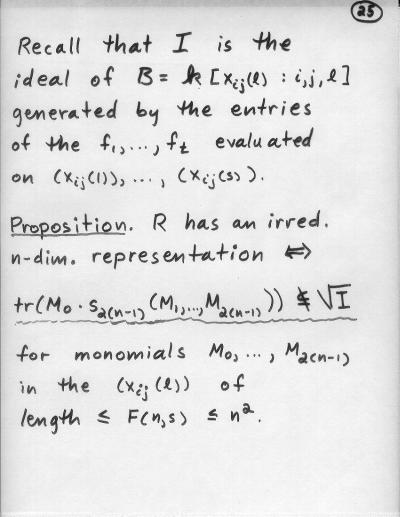 25
Recall that I is the
ideal of B = k[x_{ij}(ℓ) : i,j,ℓ]
generated by the entries
of the f_1,...,f_t evaluated
on (x_{ij}(1)),..., (x_{ij}(s)).
Proposition. R has an irred.
n-dim. representation ⟺
tr(M_0 · S_{2(n-1)}(M_1,...,M_{2(n-1)})) ∉ √I
for monomials M_0,..., M_{2(n-1)}
in the (x_{ij}(ℓ)) of
length ≤ F(n,s) ≤ n^2.